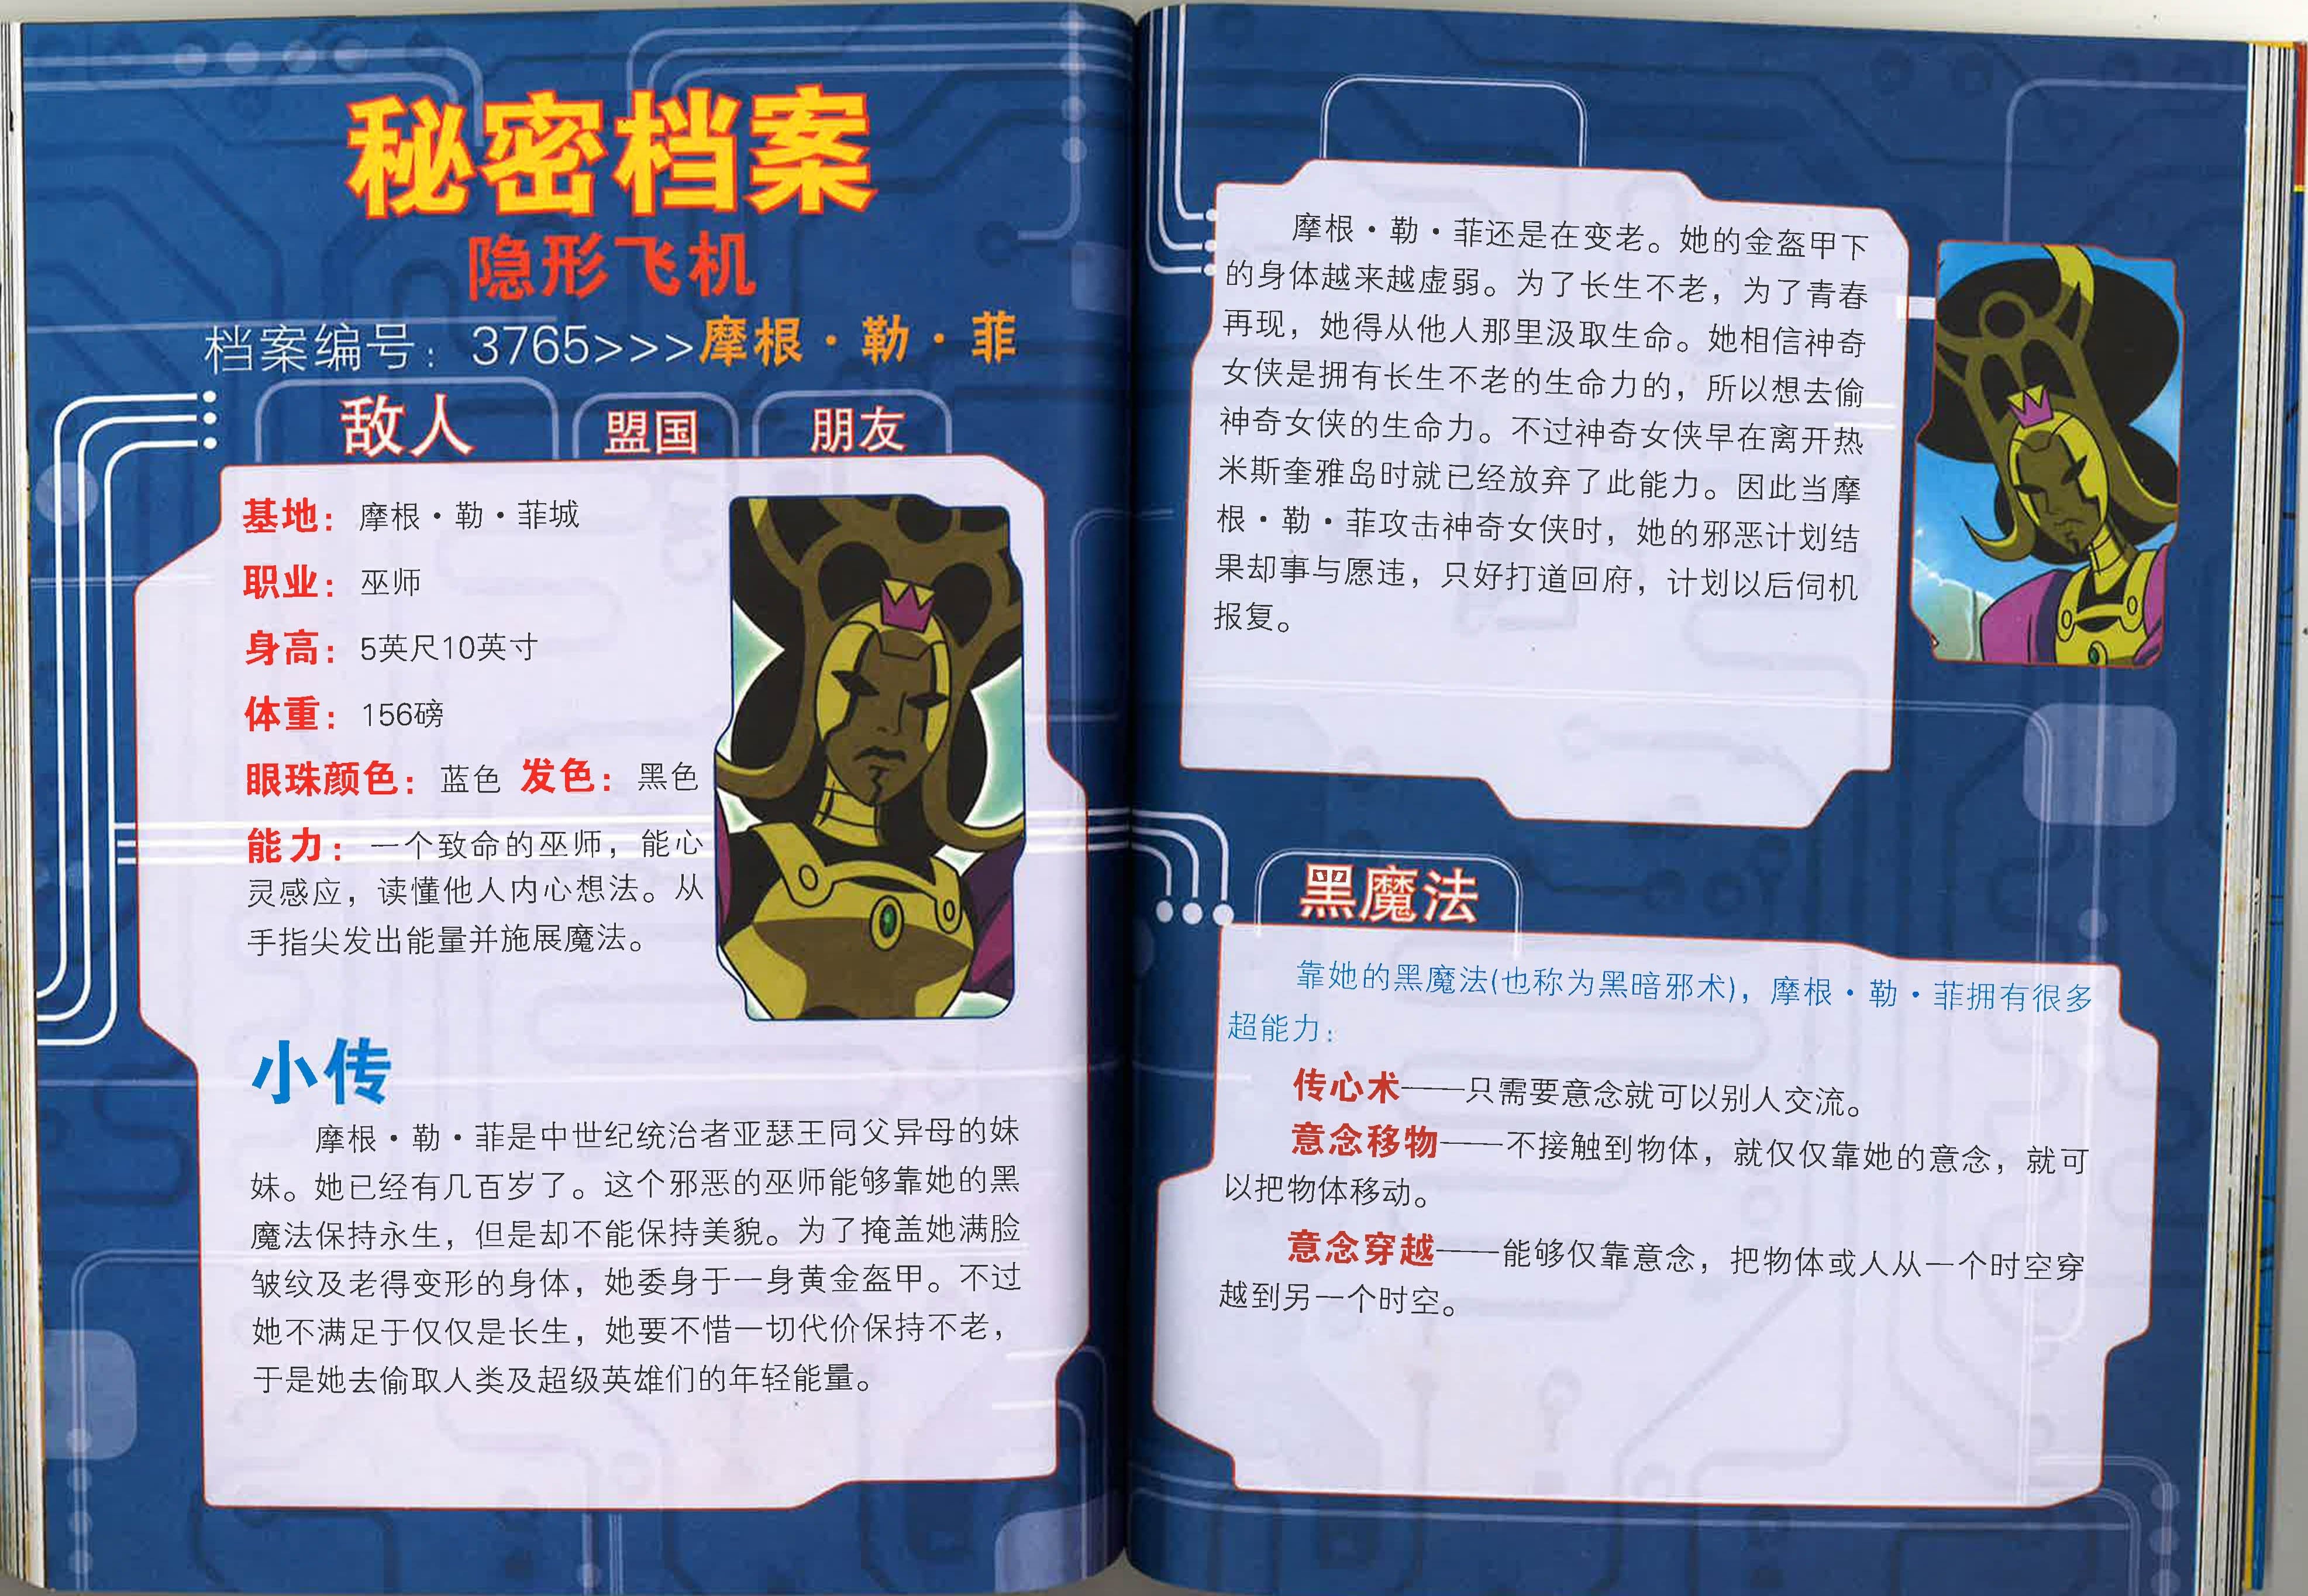 秘密档案
隐形飞机
档案编号：3765>>>摩根·勒·菲
敌人 盟国 朋友
基地：摩根·勒·菲城
职业：巫师
身高：5英尺10英寸
体重：156磅
眼珠颜色：蓝色 发色：黑色
能力：一个致命的巫师，能心
灵感应，读懂他人内心想法。从
手指尖发出能量并施展魔法。
小传
摩根·勒·菲是中世纪统治者亚瑟王同父异母的妹
妹。她已经有几百岁了。这个邪恶的巫师能够靠她的黑
魔法保持永生，但是却不能保持美貌。为了掩盖她满脸
皱纹及老得变形的身体，她委身于一身黄金盔甲。不过
她不满足于仅仅是长生，她要不惜一切代价保持不老，
于是她去偷取人类及超级英雄们的年轻能量。
摩根·勒·菲还是在变老。她的金盔甲下
的身体越来越虚弱。为了长生不老，为了青春
再现，她得从他人那里汲取生命。她相信神奇
女侠是拥有长生不老的生命力的，所以想去偷
神奇女侠的生命力。不过神奇女侠早在离开热
米斯奎雅岛时就已经放弃了此能力。因此当摩
根·勒·菲攻击神奇女侠时，她的邪恶计划结
果却事与愿违，只好打道回府，计划以后伺机
报复。
黑魔法
靠她的黑魔法(也称为黑暗邪术)，摩根·勒·菲拥有很多
超能力：
传心术——只需要意念就可以别人交流。
意念移物——不接触到物体，就仅仅靠她的意念，就可
以把物体移动。
意念穿越——能够仅靠意念，把物体或人从一个时空穿
越到另一个时空。